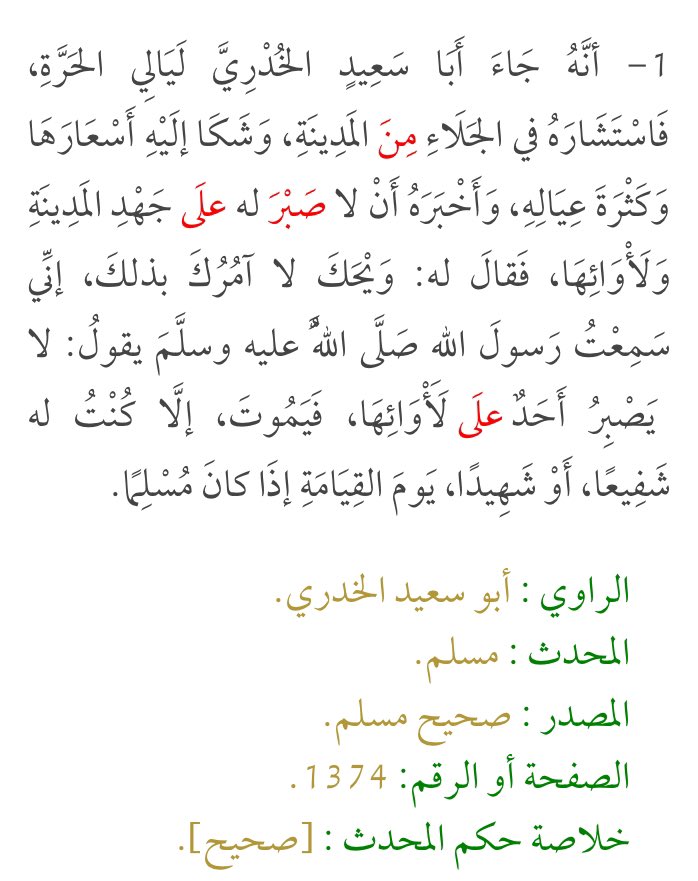 1- أنَّهُ جَاءَ أَبَا سَعِيدٍ الخُدْرِيَّ لَيَالِي الحَرَّةِ،
فَاسْتَشَارَهُ في الجَلَاءِ مِنَ المَدِينَةِ، وَشَكَا إلَيْهِ أَسْعَارَهَا
وَكَثْرَةَ عِيَالِهِ، وَأَخْبَرَهُ أَنْ لا صَبْرَ له علَى جَهْدِ المَدِينَةِ
وَلَأْوَائِهَا، فَقالَ له: وَيْحَكَ لا آمُرُكَ بذلكَ، إنِّي
سَمِعْتُ رَسولَ الله صَلَّى اللَّهُ عليه وسلَّمَ يقولُ: لا
يَصْبِرُ أَحَدٌ علَى لَأْوَائِهَا، فَيَمُوتَ، إلَّا كُنْتُ له
شَفِيعًا، أَوْ شَهِيدًا، يَومَ القِيَامَةِ إذَا كانَ مُسْلِمًا.
الراوي : أبو سعيد الخدري.
المحدث : مسلم.
المصدر : صحيح مسلم.
الصفحة أو الرقم: 1374.
خلاصة حكم المحدث : [صحيح].